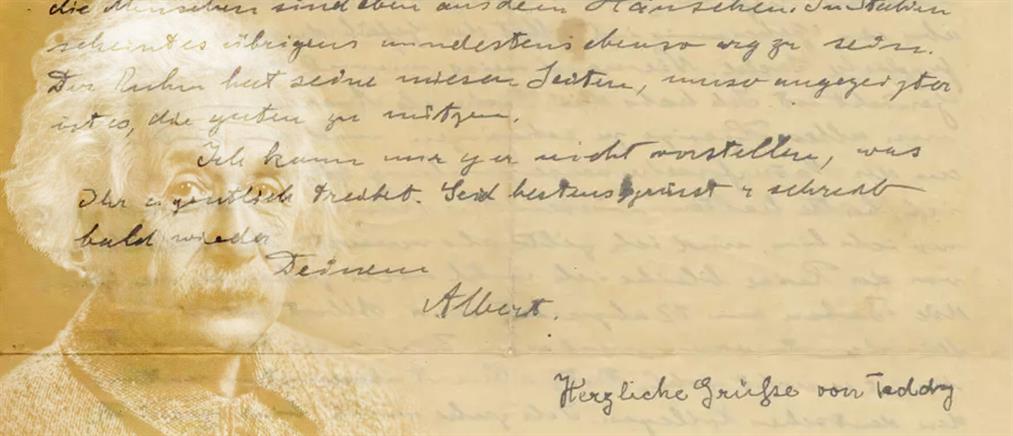 die Menschen sind eben aus dem Häuschen. In Italien
scheint es übrigens mindestens ebenso arg zu sein.
Der Ruhm hat seine miesen Seiten, umso angezeigter
ist es, die guten zu nützen.
Ich kann mir gar nicht vorstellen, was
Ihr eigentlich treibet. Seid bestens gegrüsst u schreibt
bald wieder
Deinem
Albert.
Herzliche Grüsse von Teddy